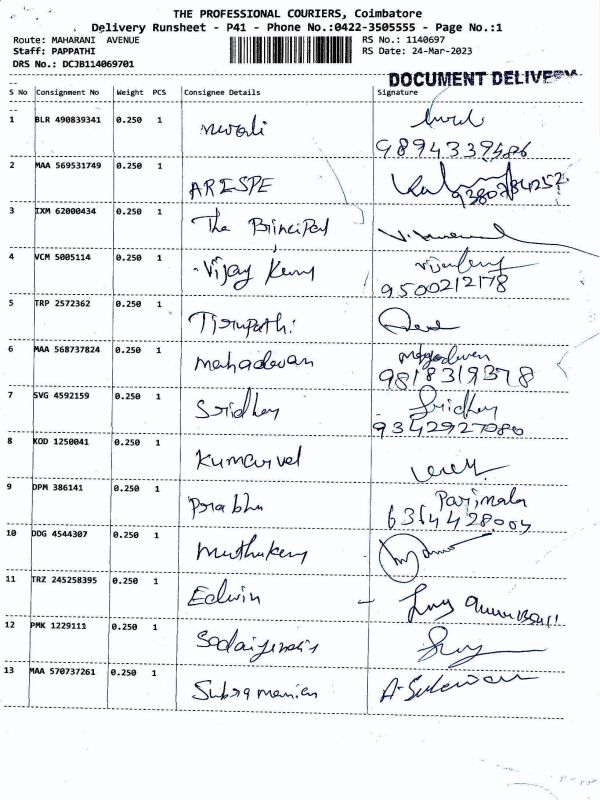 THE PROFESSIONAL COURIERS, Coimbatore
Delivery Runsheet - P41 - Phone No.:0422-3505555 - Page No.:1
Route: MAHARANI AVENUE RS No.: 1140697
Staff: PAPPATHI RS Date: 24-Mar-2023
DRS No.: DCJB114069701
DOCUMENT DELIVERY
S No Consignment No Weight PCS Consignee Details Signature
1 BLR 490839341 0.250 1
2 MAA 569531749 0.250 1 ARISPE
3 IXM 62000434 0.250 1 The Principal
4 VCM 5005114 0.250 1 Vijay Kumy
9500212178
5 TRP 2572362 0.250 1 Tirupathi
6 MAA 568737824 0.250 1 Mahadevan
9818319378
7 SVG 4592159 0.250 1 Sridhey Sridhey
9342927080
8 KOD 1250041 0.250 1 Kumarvel
9 DPM 386141 0.250 1 Prabhu Parimala
6314428004
10 DDG 4544307 0.250 1 Muthukeny
11 TRZ 245258395 0.250 1 Edwin
12 PMK 1229111 0.250 1
13 MAA 570737261 0.250 1 Subramanian